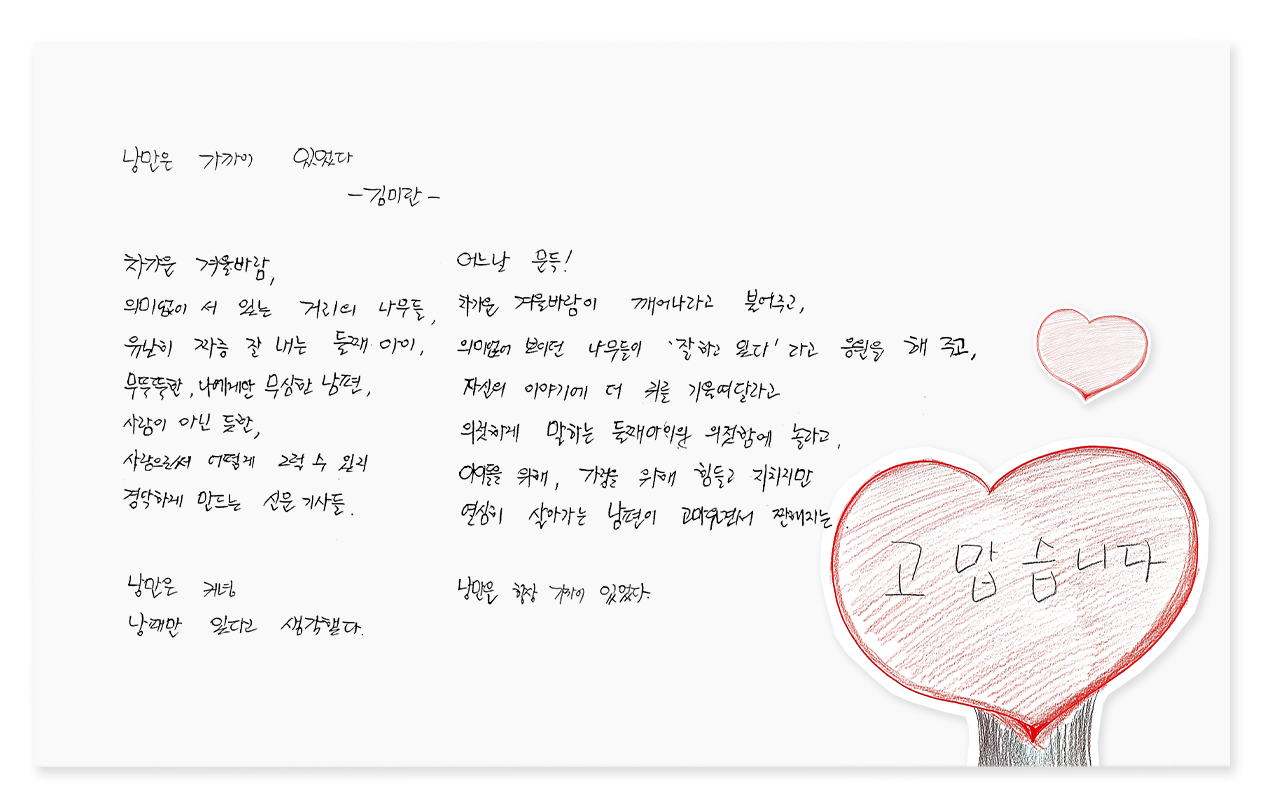 낭만은 가까이 있었다
-김미란-
차가운 겨울바람,
의미없이 서 있는 거리의 나무들,
유난히 짜증 잘 내는 둘째 아이,
무뚝뚝한, 나에게만 무심한 남편,
사람이 아닌 듯한,
사람으로서 어떻게 그럴 수 있지
경악하게 만드는 신문 기사들.
낭만은 커녕
낭패만 있다고 생각했다.
어느날 문득!
차가운 겨울바람이 깨어나라고 불어주고,
의미없어 보이던 나무들이 '잘하고 있다'라고 응원을 해 주고,
자신의 이야기에 더 귀를 기울여달라고
의젓하게 말하는 둘째아이의 의젓함에 놀라고,
아이들을 위해, 가정을 위해 힘들고 지치지만
열심히 살아가는 남편이 고마우면서 짠해지는.
낭만은 항상 가까이 있었다.
고맙습니다